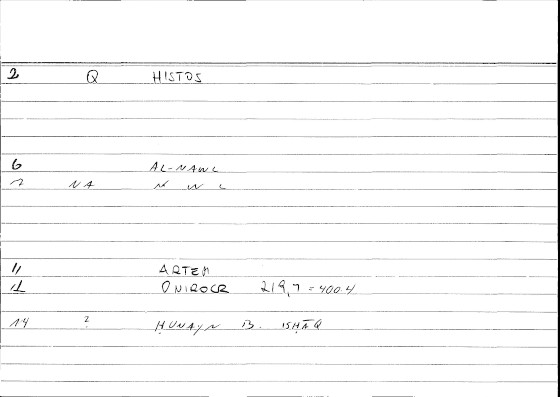 2 Q HISTOS
6 AL-NAWL
7 NA N W L
11 ARTEM
12 ONIROCR 219,7 = 400.4
14 ? ḤUNAYN B. ISḤĀQ